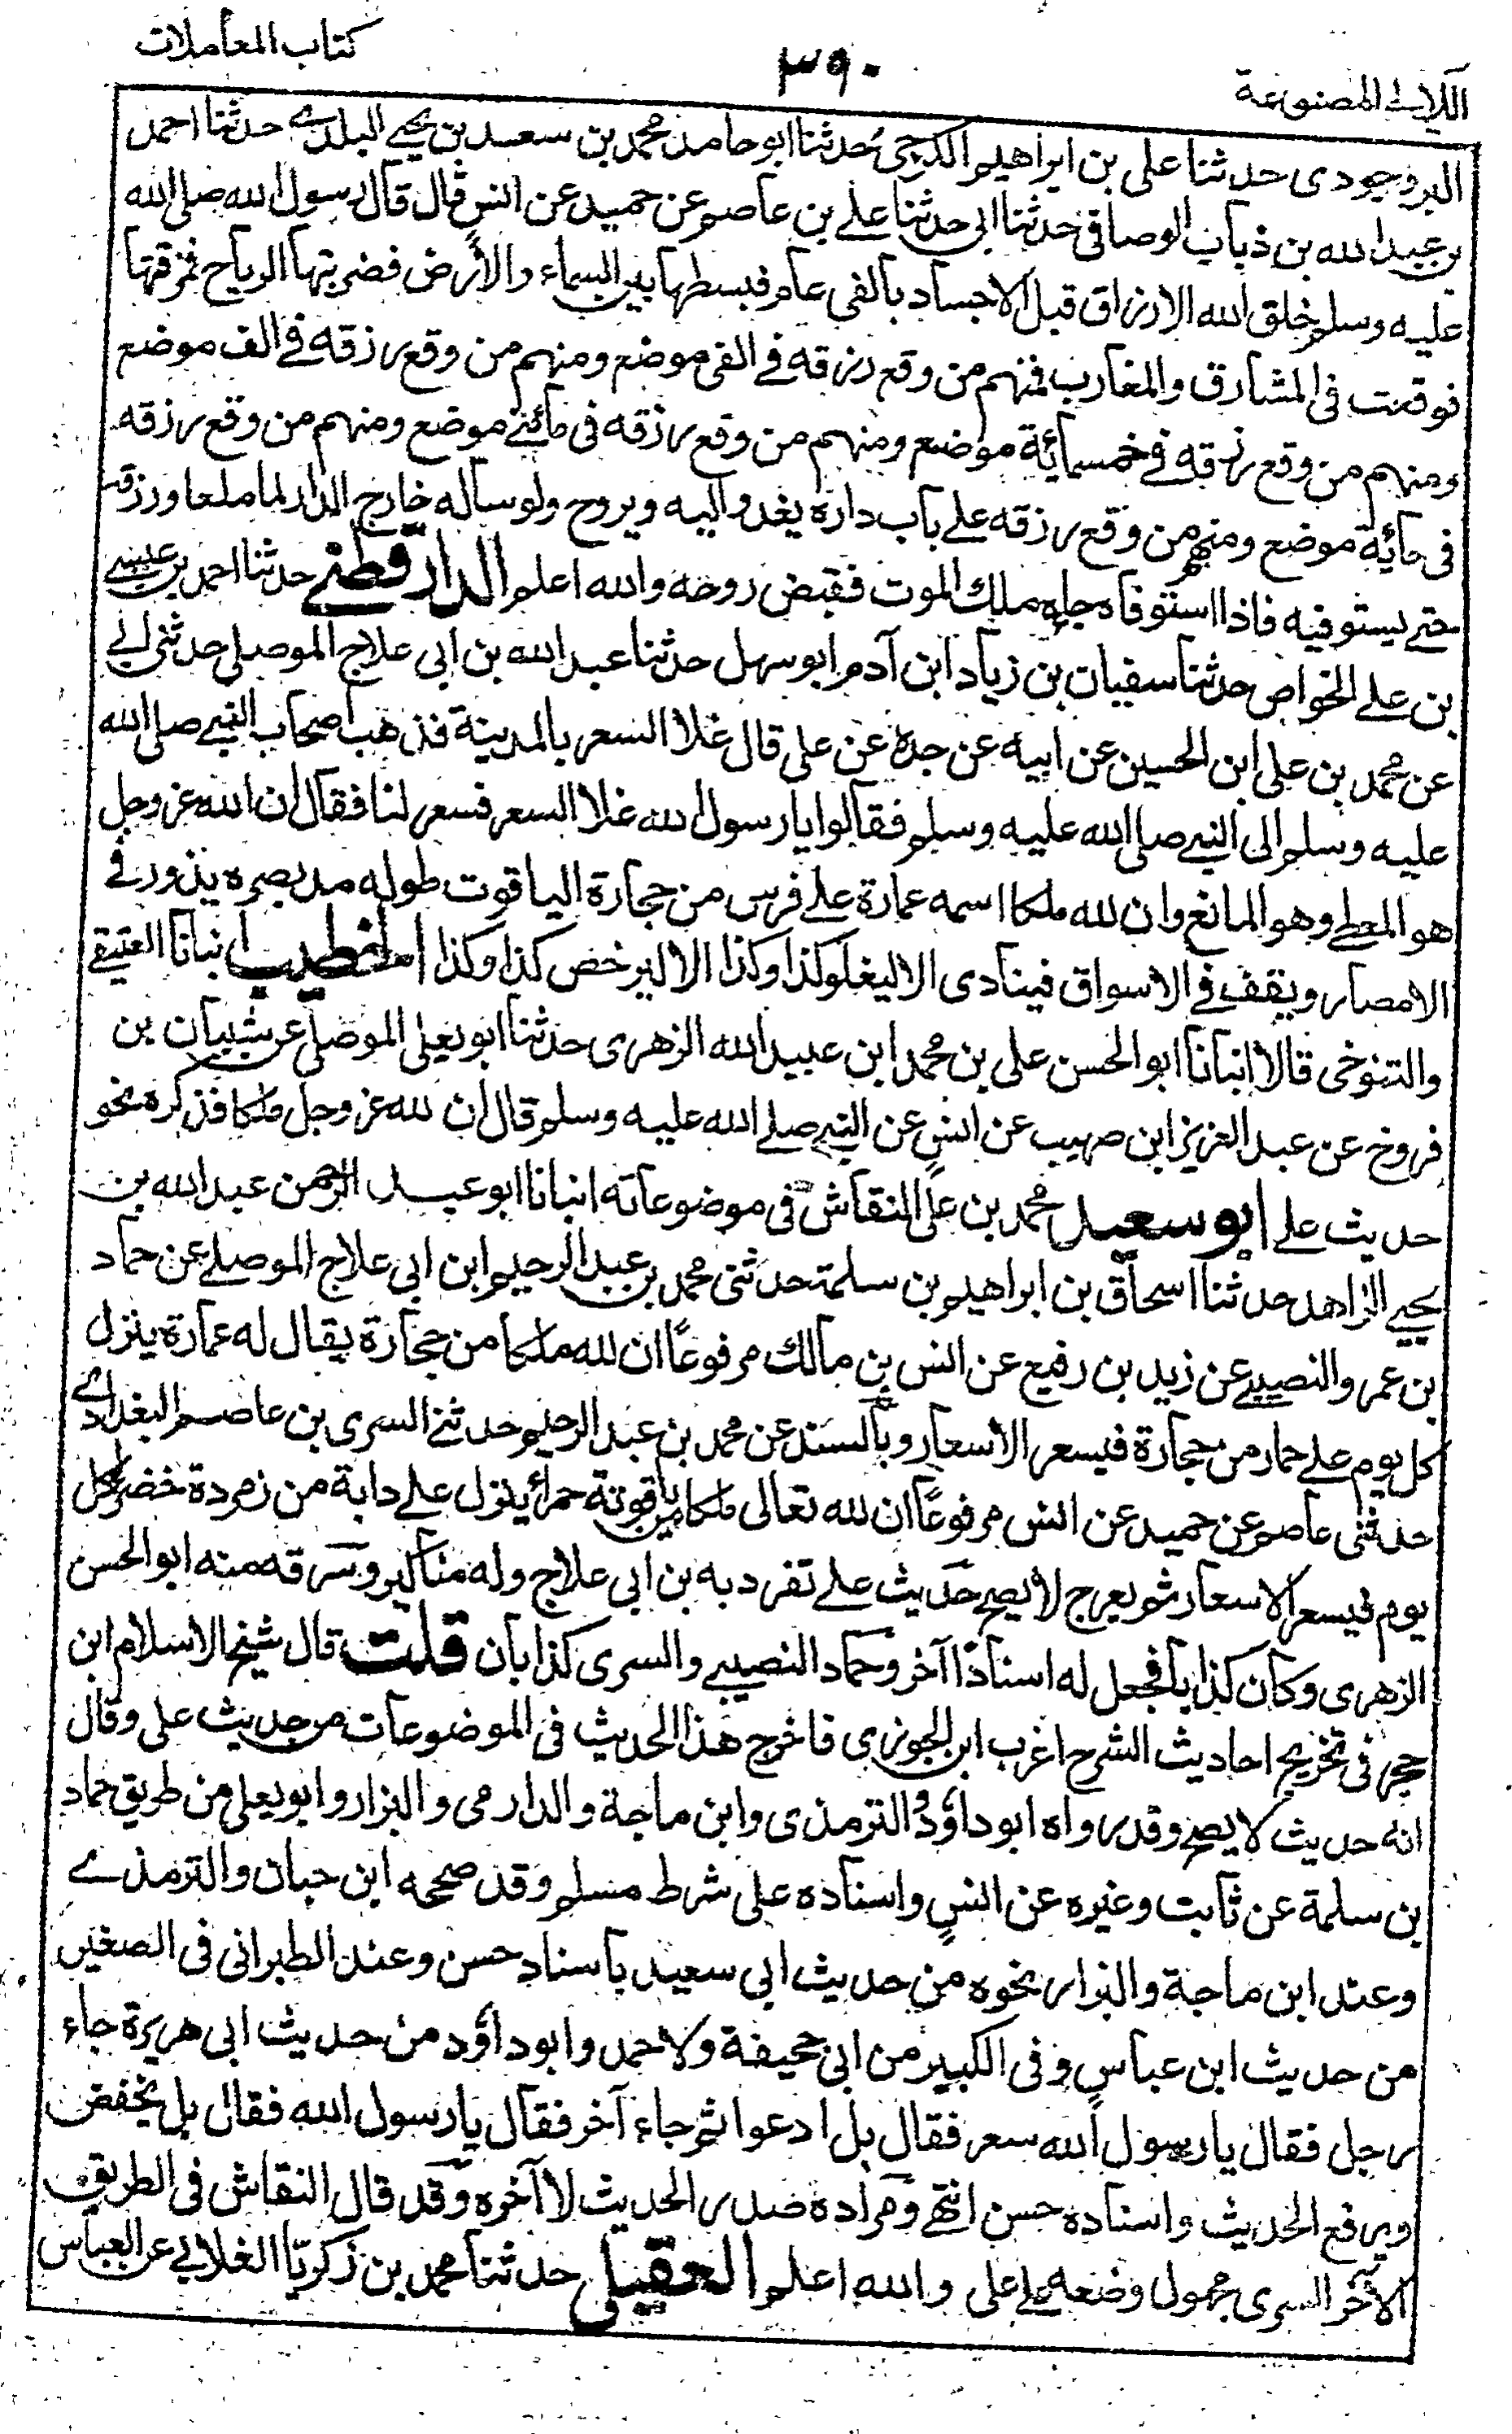 اللآلئ المصنوعة
٣٩٠
كتاب المعاملات
البروجردى حدثنا على بن ابراهيم الكرجى حدثنا ابو حامد محمد بن سعيد بن يحيى البلدى حدثنا احمد
بن عبيد الله بن ذباب الوصافى حدثنا ابى حدثنا على بن عاصم عن حميد عن انس قال قال رسول الله صلى الله
عليه وسلم خلق الله الارزاق قبل الاجساد بالفى عام فبسطها بين السماء والأرض فضربتها الرياح فمزقتها
فوقعت فى المشارق والمغارب فمنهم من وقع رزقه فى الفى موضع ومنهم من وقع رزقه فى الف موضع
ومنهم من وقع رزقه فى خمسمائة موضع ومنهم من وقع رزقه فى مائتى موضع ومنهم من وقع رزقه
فى مائة موضع ومنهم من وقع رزقه على باب داره يغدو اليه ويروح ولو ساله خارج الدار لما ورزقه
حتى يستوفيه فاذا استوفاه جاءه ملك الموت فقبض روحه والله اعلم الدارقطنى حدثنا احمد بن عيسى
بن على الخواص حدثنا سفيان بن زياد ابن آدم ابو سهل حدثنا عبد الله بن ابى علاج الموصلى حدثنى ابى
عن محمد بن على ابن الحسين عن ابيه عن جده عن على قال غلا السعر بالمدينة فذهب اصحاب النبى صلى الله
عليه وسلم الى النبى صلى الله عليه وسلم فقالوا يا رسول الله غلا السعر فسعر لنا فقال ان الله عز وجل
هو المعطى وهو المانع وان لله ملكا اسمه عمارة على فرس من حجارة الياقوت طوله مد بصره يدور فى
الامصار ويقف فى الاسواق فينادى الا ليغلو كذا وكذا الا ليرخص كذا وكذا الخطيب انبانا العتيقى
والتنوخى قالا انبانا ابو الحسن على بن محمد ابن عبيد الله الزهرى حدثنا ابو يعلى الموصلى عن شيبان بن
فروخ عن عبد العزيز ابن صهيب عن انس عن النبى صلى الله عليه وسلم قال ان لله عز وجل ملكا فذكره نحو
حديث على ابو سعيد محمد بن على النقاش فى موضوعاته انبانا ابو عبد الرحمن عبد الله بن
يحيى الزاهد حدثنا اسحاق بن ابراهيم بن سلمة حدثنى محمد بن عبد الرحيم ابن ابى علاج الموصلى عن حماد
بن عمرو النصيبى عن زيد بن رفيع عن انس بن مالك مرفوعا ان لله ملكا من حجارة يقال له عمارة ينزل
كل يوم على حمار من حجارة فيسعر الاسعار وبالسند عن محمد بن عبد الرحيم حدثنى السرى بن عاصم البغدادى
حدثنى عاصم عن حميد عن انس مرفوعا ان لله تعالى ملكا من ياقوتة حمراء ينزل على دابة من زمردة خضراء كل
يوم فيسعر الاسعار ثم يعرج لا يصح حديث على تفرد به بن ابى علاج وله مناكير وسرقه منه ابو الحسن
الزهرى وكان كذابا فجعل له اسنادا آخر وحماد النصيبى والسرى كذابان قلت قال شيخ الاسلام ابن
حجر فى تخريج احاديث الشرح اغرب ابن الجوزى فاخرج هذا الحديث فى الموضوعات من حديث على وقال
انه حديث لا يصح وقد رواه ابو داؤد والترمذى وابن ماجة والدارمى والبزار وابو يعلى من طريق حماد
بن سلمة عن ثابت وغيره عن انس واسناده على شرط مسلم وقد صححه ابن حبان والترمذى
وعند ابن ماجة والبزار نحوه من حديث ابى سعيد باسناد حسن وعند الطبرانى فى الصغير
من حديث ابن عباس وفى الكبير من ابى جحيفة ولاحمد وابو داؤد من حديث ابى هريرة جاء
رجل فقال يا رسول الله سعر فقال بل ادعوا ثم جاء آخر فقال يا رسول الله فقال بل يخفض
ويرفع الحديث واسناده حسن انتهى ومراده صدر الحديث لا آخره وقد قال النقاش فى الطريق
الآخر السرى مجهول وضعه على على والله اعلم العقيلى حدثنا محمد بن زكريا الغلابى عن العباس